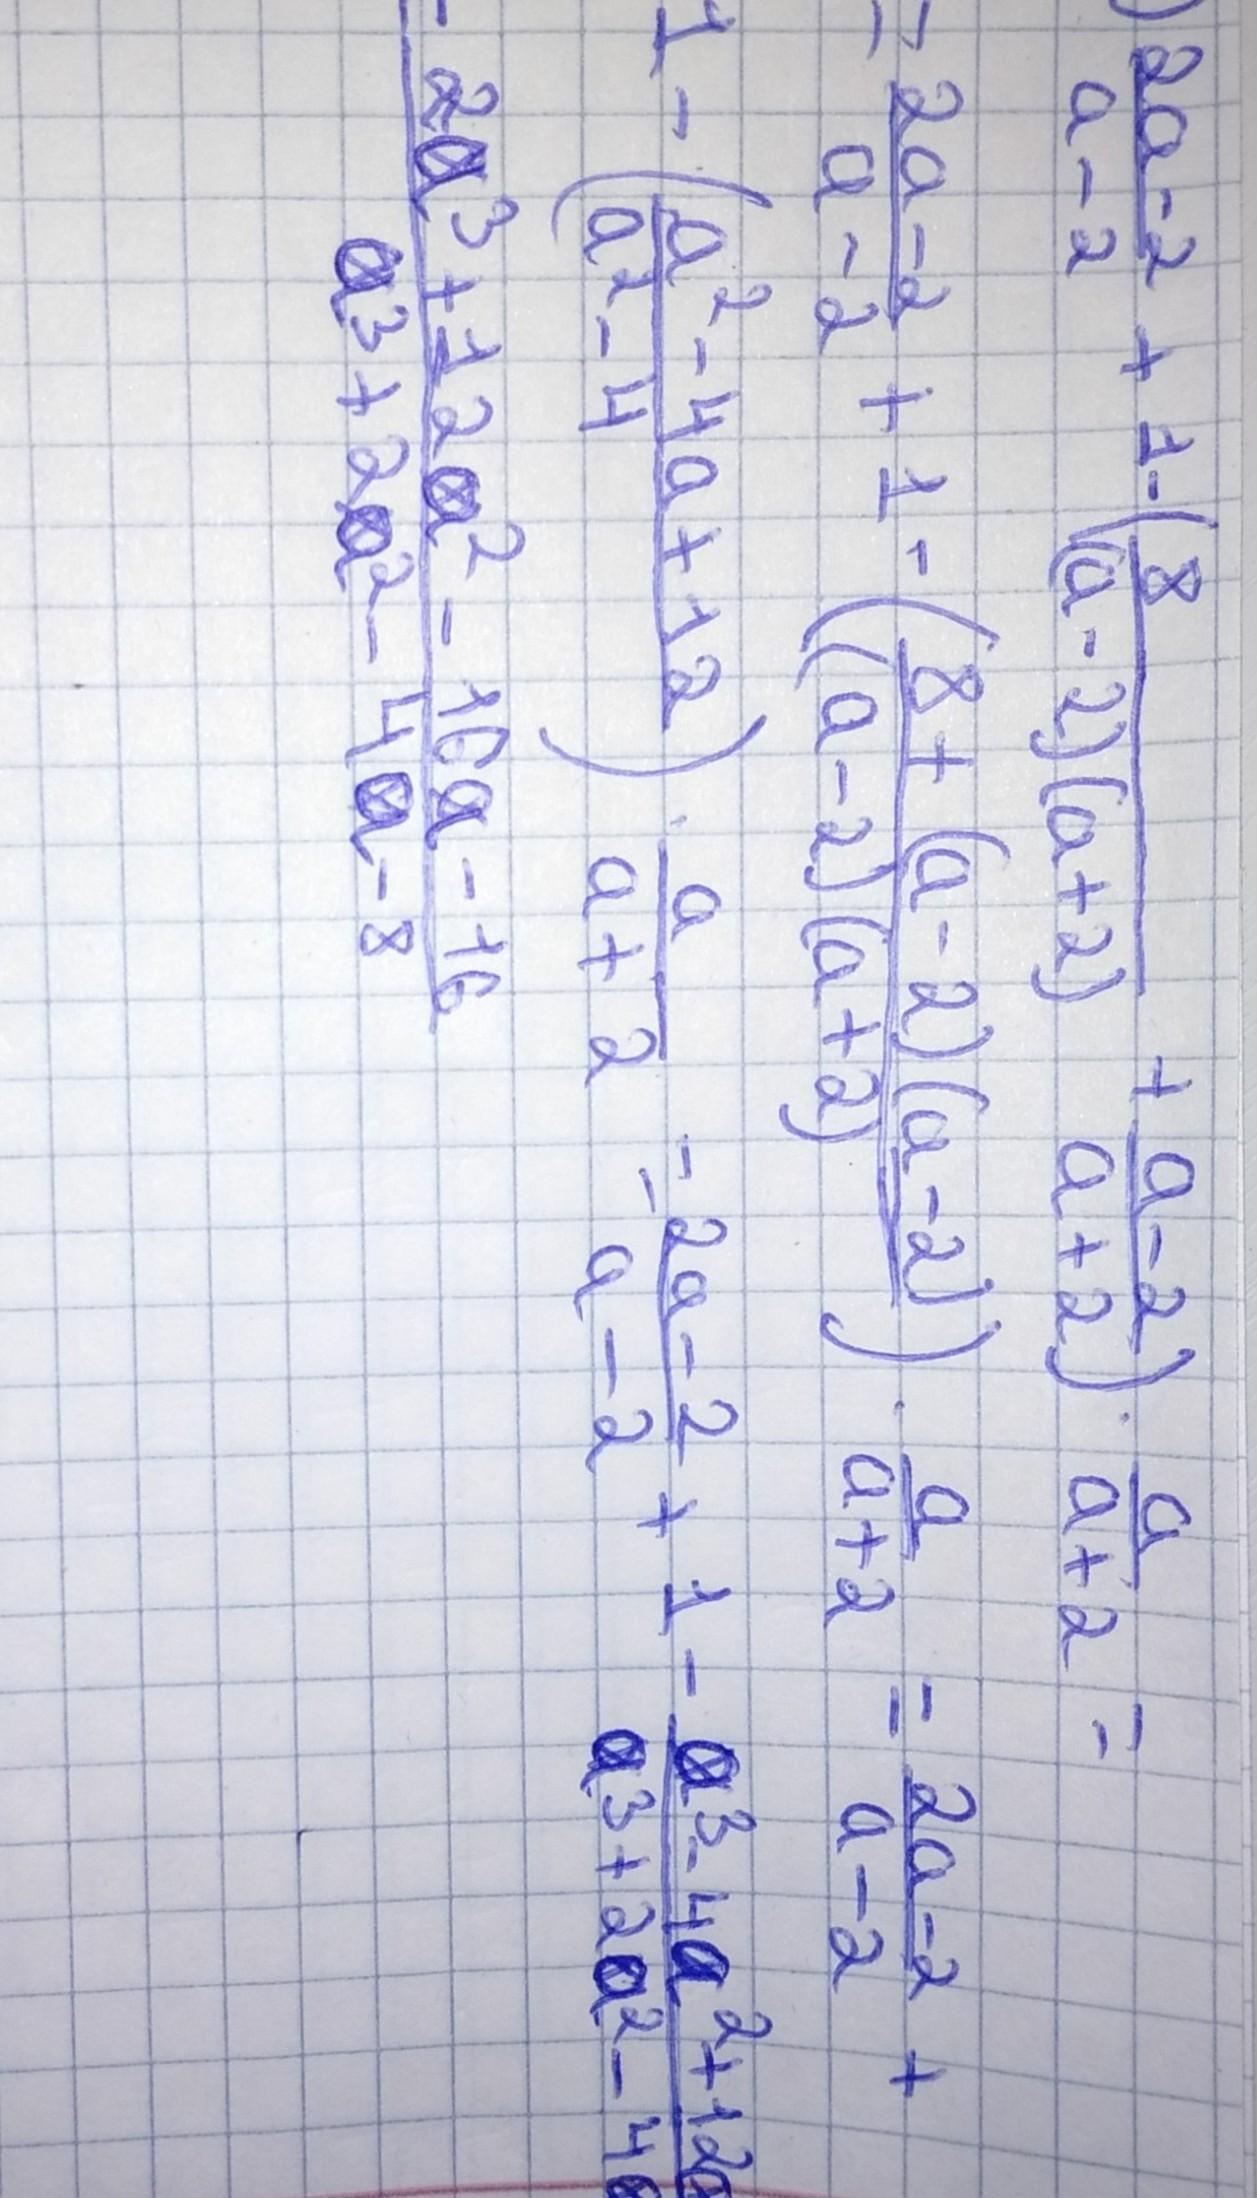 ) (2a-2)/(a-2) + 1 - (8/((a-2)(a+2)) + (a-2)/(a+2)) · a/(a+2) =
= (2a-2)/(a-2) + 1 - ((8+(a-2)(a-2))/((a-2)(a+2))) · a/(a+2) = (2a-2)/(a-2) +
1 - ((a²-4a+12)/(a²-4)) · a/(a+2) = (2a-2)/(a-2) + 1 - (a³-4a²+12a)/(a³+2a²-4a
= (2a³+12a²-16a-16)/(a³+2a²-4a-8)